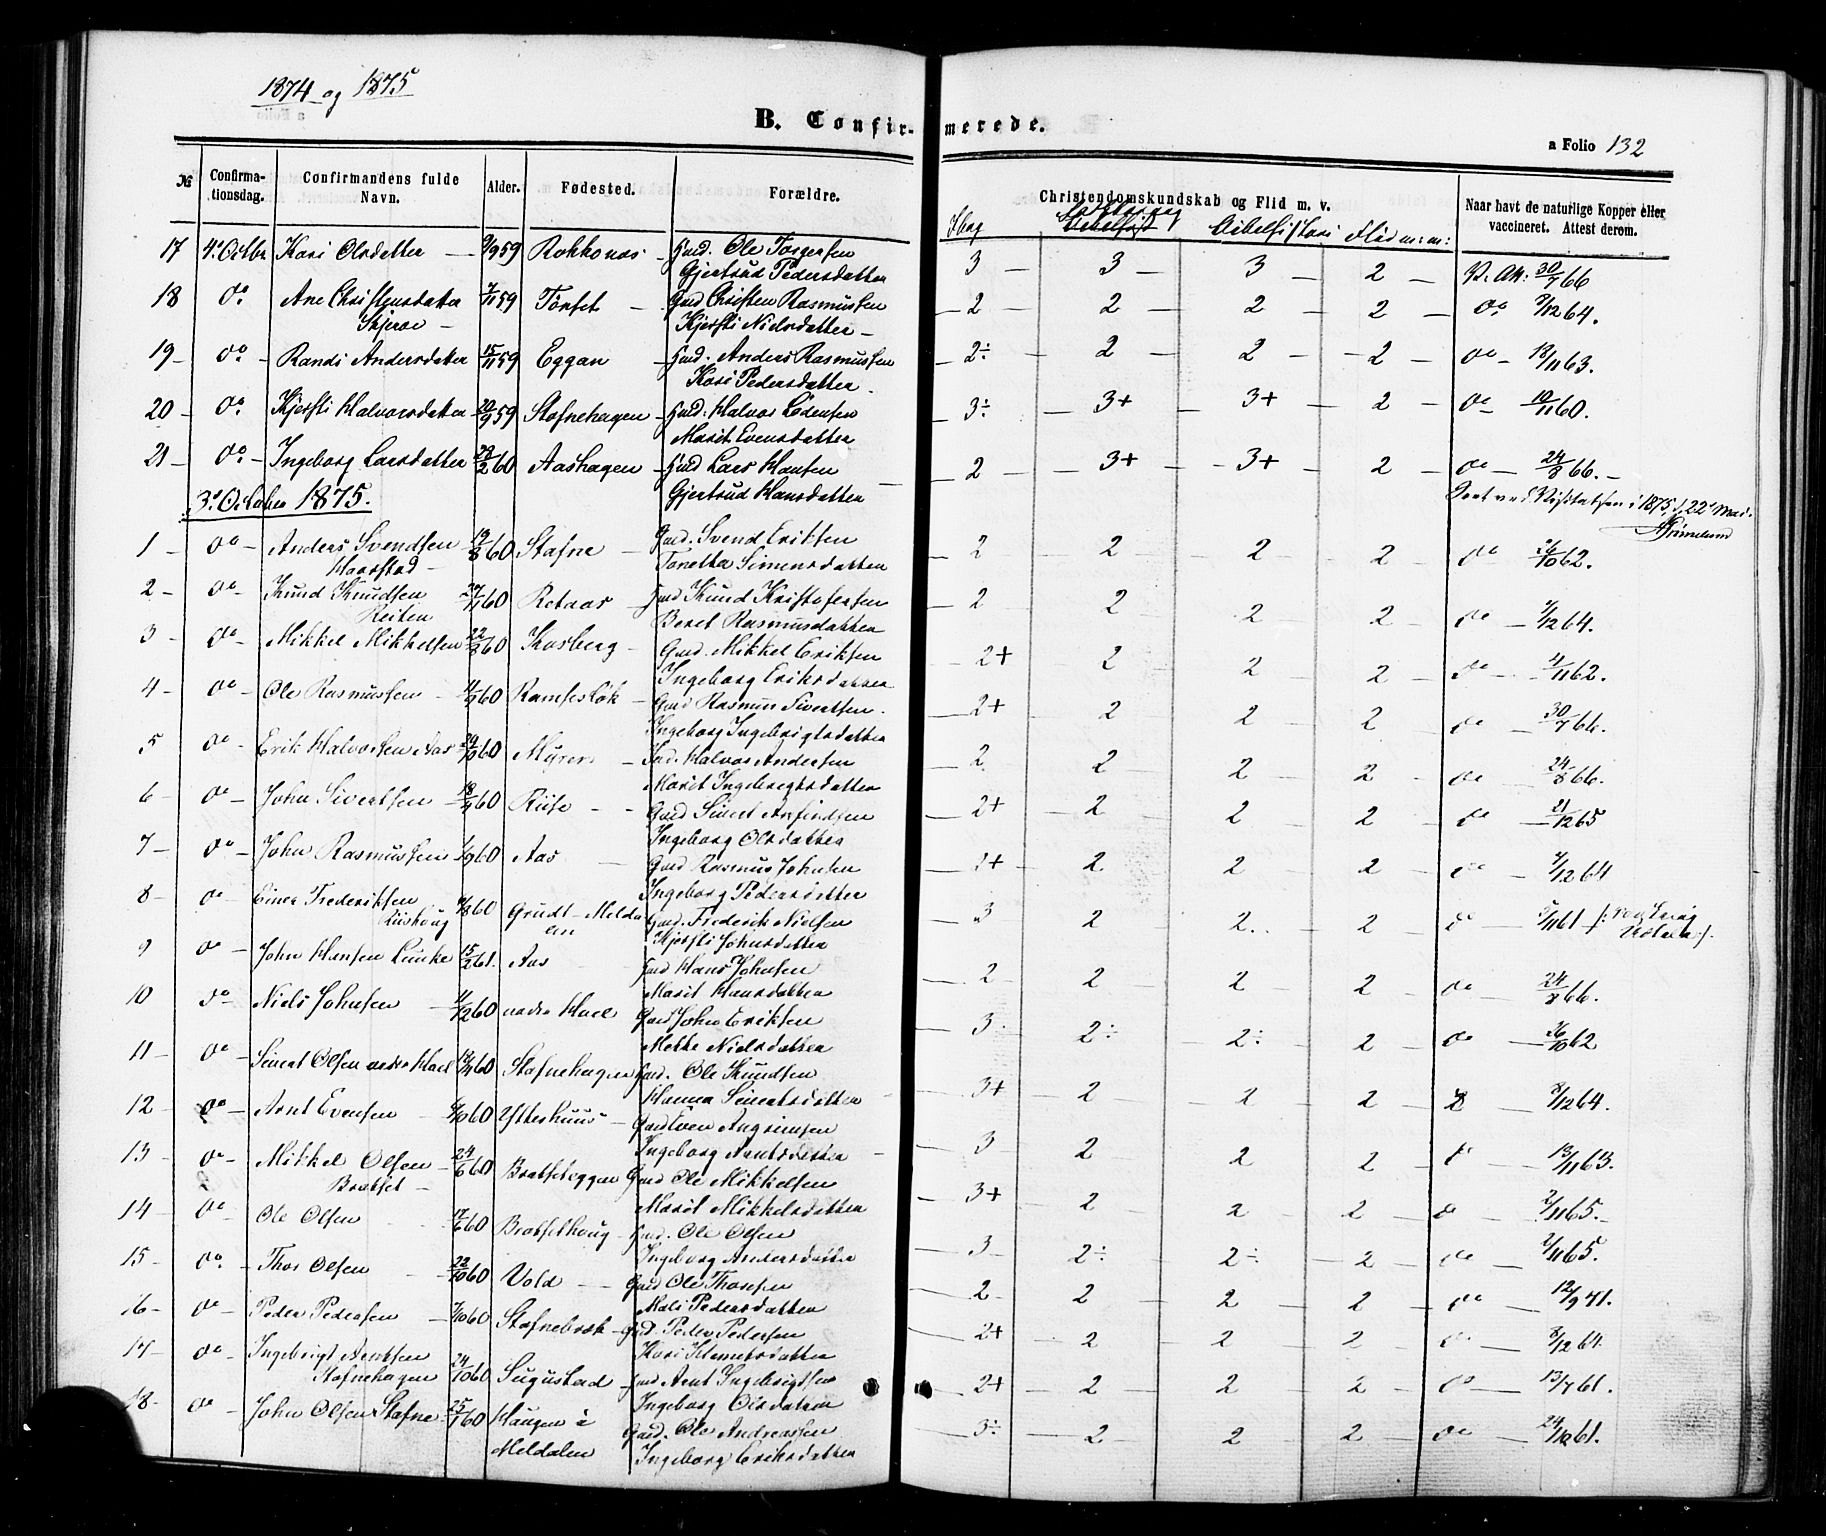 1874 og 1875
B. Confirmerede.
a Folio 132
№ Confirmationsdag. Confirmandens fulde Navn. Alder. Fødested. Forældre. Christendomskundskab og Flid m. v. Naar havt de naturlige Kopper eller vaccineret. Attest derom.
Bibelhistorie Flid m: m:
17 4de Octbr Kari Olsdatter 9/9 59 Rokkones Gmd. Ole Torgersen 3 3 3 2 V. Att: 30/7 66
Gjertrud Pedersdatter
18 do Ane Christensdatter 7/11 59 Torset Gmd Christen Rasmussen 2 2 2 2 do 8/12 64.
Skjeroe Kjersti Nielsdatter
19 do Randi Andersdatter 15/11 59 Eggan Gmd. Anders Rasmussen 2÷ 2 2 2 do 13/11 63.
Kari Pedersdatter
20 do Kjersti Halvorsdatter 20/9 59 Stafnehagen Gmd: Halvor Lodensen 3÷ 3+ 3+ 2 do 19/11 60.
Marit Evensdatter
21 do Ingeborg Larsdatter 29/2 60 Aashagen Gmd Lars Hansen 2 3+ 3+ 2 do 24/8 66.
Gjertrud Hansdatter
3de October 1875.
ved Visitatsen i 1875, d. 22de Mai.
1 do Anders Svendsen 19/8 60 Stafne Gmd. Svend Eriksen 2 2 2 2 do 26/10 62.
Haarstad Tonetta Simensdatter
2 do Knud Knudsen 27/11 60 Retaas Gmd Knud Kristofersen 2 2 2 2 do 7/12 64.
Reiten Beret Rasmusdatter
3 do Mikkel Mikkelsen 22/8 60 Kosberg Gmd. Mikkel Eriksen 2+ 2 2 2 do 4/11 62.
Ingeborg Eriksdatter
4 do Ole Rasmussen 4/9 60 Ramsesløk Gmd Rasmus Sivertsen. 2+ 2 2 2 do 30/7 66.
Ingeborg Ingebrigtsdatter
5 do Erik Halvorsen Aas 60 Myren Halvor Andersen 2 2 2 2 do 24/8 66.
Marit Ingebrigtsdatter
6 do John Sivertsen 18/9 60 Riise Gmd Sivert Arnfindsen 2+ 2 2 2 do 21/12 65
Ingeborg Olsdatter
7 do John Rasmussen 1/9 60 Aas Gmd Rasmus Johnsen 2+ 2 2 2 do 7/12 64
Ingeborg Pedersdatter
8 do Einer Frederiksen 60 Grudt Meldalen Gmd. Frederik Nielsen 3 2 2 2 do 5/11 61
Kjersti Johnsdatter
9 do John Hansen Lunke 15/2 61. Aas Gmd Hans Johnsen 2 2 2 2 do 24/8 66.
Marit Hansdatter
10 do Niels Johnsen 4/12 60 nedre Hael Gmd John Eriksen 3 2÷ 2÷ 2 do 26/10 62
Mette Nielsdatter
11 do Sivert Olsen nedre Hael 60 Stafnehagen Gmd. Ole Knudsen 3+ 2 2 2 do 8/12 64.
Hanna Sivertsdatter
12 do Arnt Evensen 60 Ytteshuus Gmd Even Angrimsen 3 2 2 2 do 13/11 63.
Ingeborg Arntsdatter
13 do Mikkel Olsen 24/6 60 Bratseteggen Gmd Ole Mikkelsen 3+ 2 2 2 do 2/11 65.
Bratset Marit Mikkelsdatter
14 do Ole Olsen 17/6 60 Bratsethoug Gmd. Ole Olsen 3 2÷ 2÷ 2 do 2/11 65.
Ingeborg Andersdatter
15 do Thor Olsen 22/10 60 Vold Gmd Ole Thoresen 2 2 2 2 do 12/9 71.
Mali Pedersdatter
16 do Peder Pedersen 7/10 60 Stafnebrek Gmd. Peder Pedersen 2+ 2 2 2 do 8/12 64.
Kari Klemetsdatter
17 do Ingebrigt Arntsen 24/10 60 Sugustad Gmd Arnt Ingebrigtsen 2+ 2 2 2 do 13/7 61.
Stafnehagen Ingeborg Olsdatter
18 do John Olsen Stafne 25/1 60 Haugen i Gmd. Ole Andreassen 3÷ 2 2 2 do 24/12 61.
Meldalen Ingeborg Eriksdatter